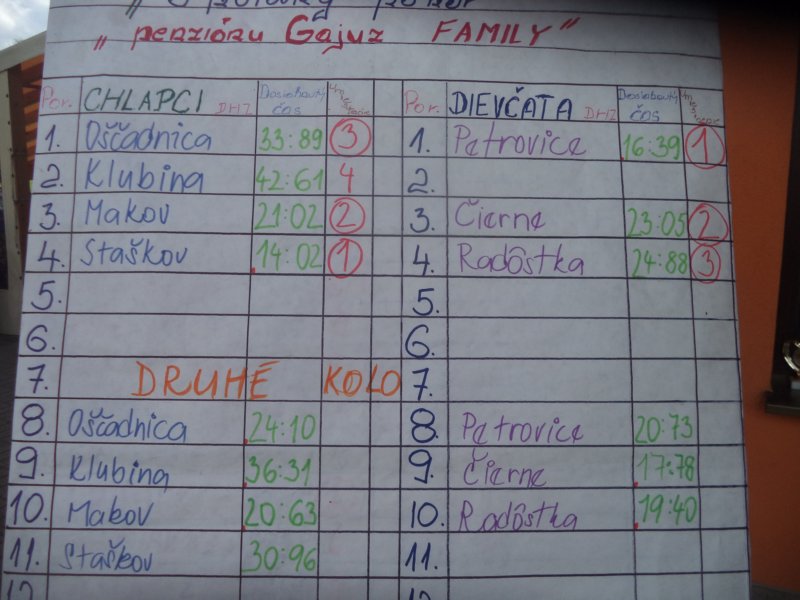 "penziónu Gajuz FAMILY"
Por. CHLAPCI DHZ Dosiahnutý čas Umiestnenie Por. DIEVČATÁ DHZ Dosiahnutý čas Umiestnenie
1. Oščadnica 33:89 3 1. Petrovice 16:39 1
2. Klubina 42:61 4 2.
3. Makov 21:02 2 3. Čierne 23:05 2
4. Staškov 14:02 1 4. Radôstka 24:88 3
5. 5.
6. 6.
7. DRUHÉ KOLO 7.
8. Oščadnica 24:10 8. Petrovice 20:73
9. Klubina 36:31 9. Čierne 17:78
10. Makov 20:63 10. Radôstka 19:40
11. Staškov 30:96 11.
12. 12.